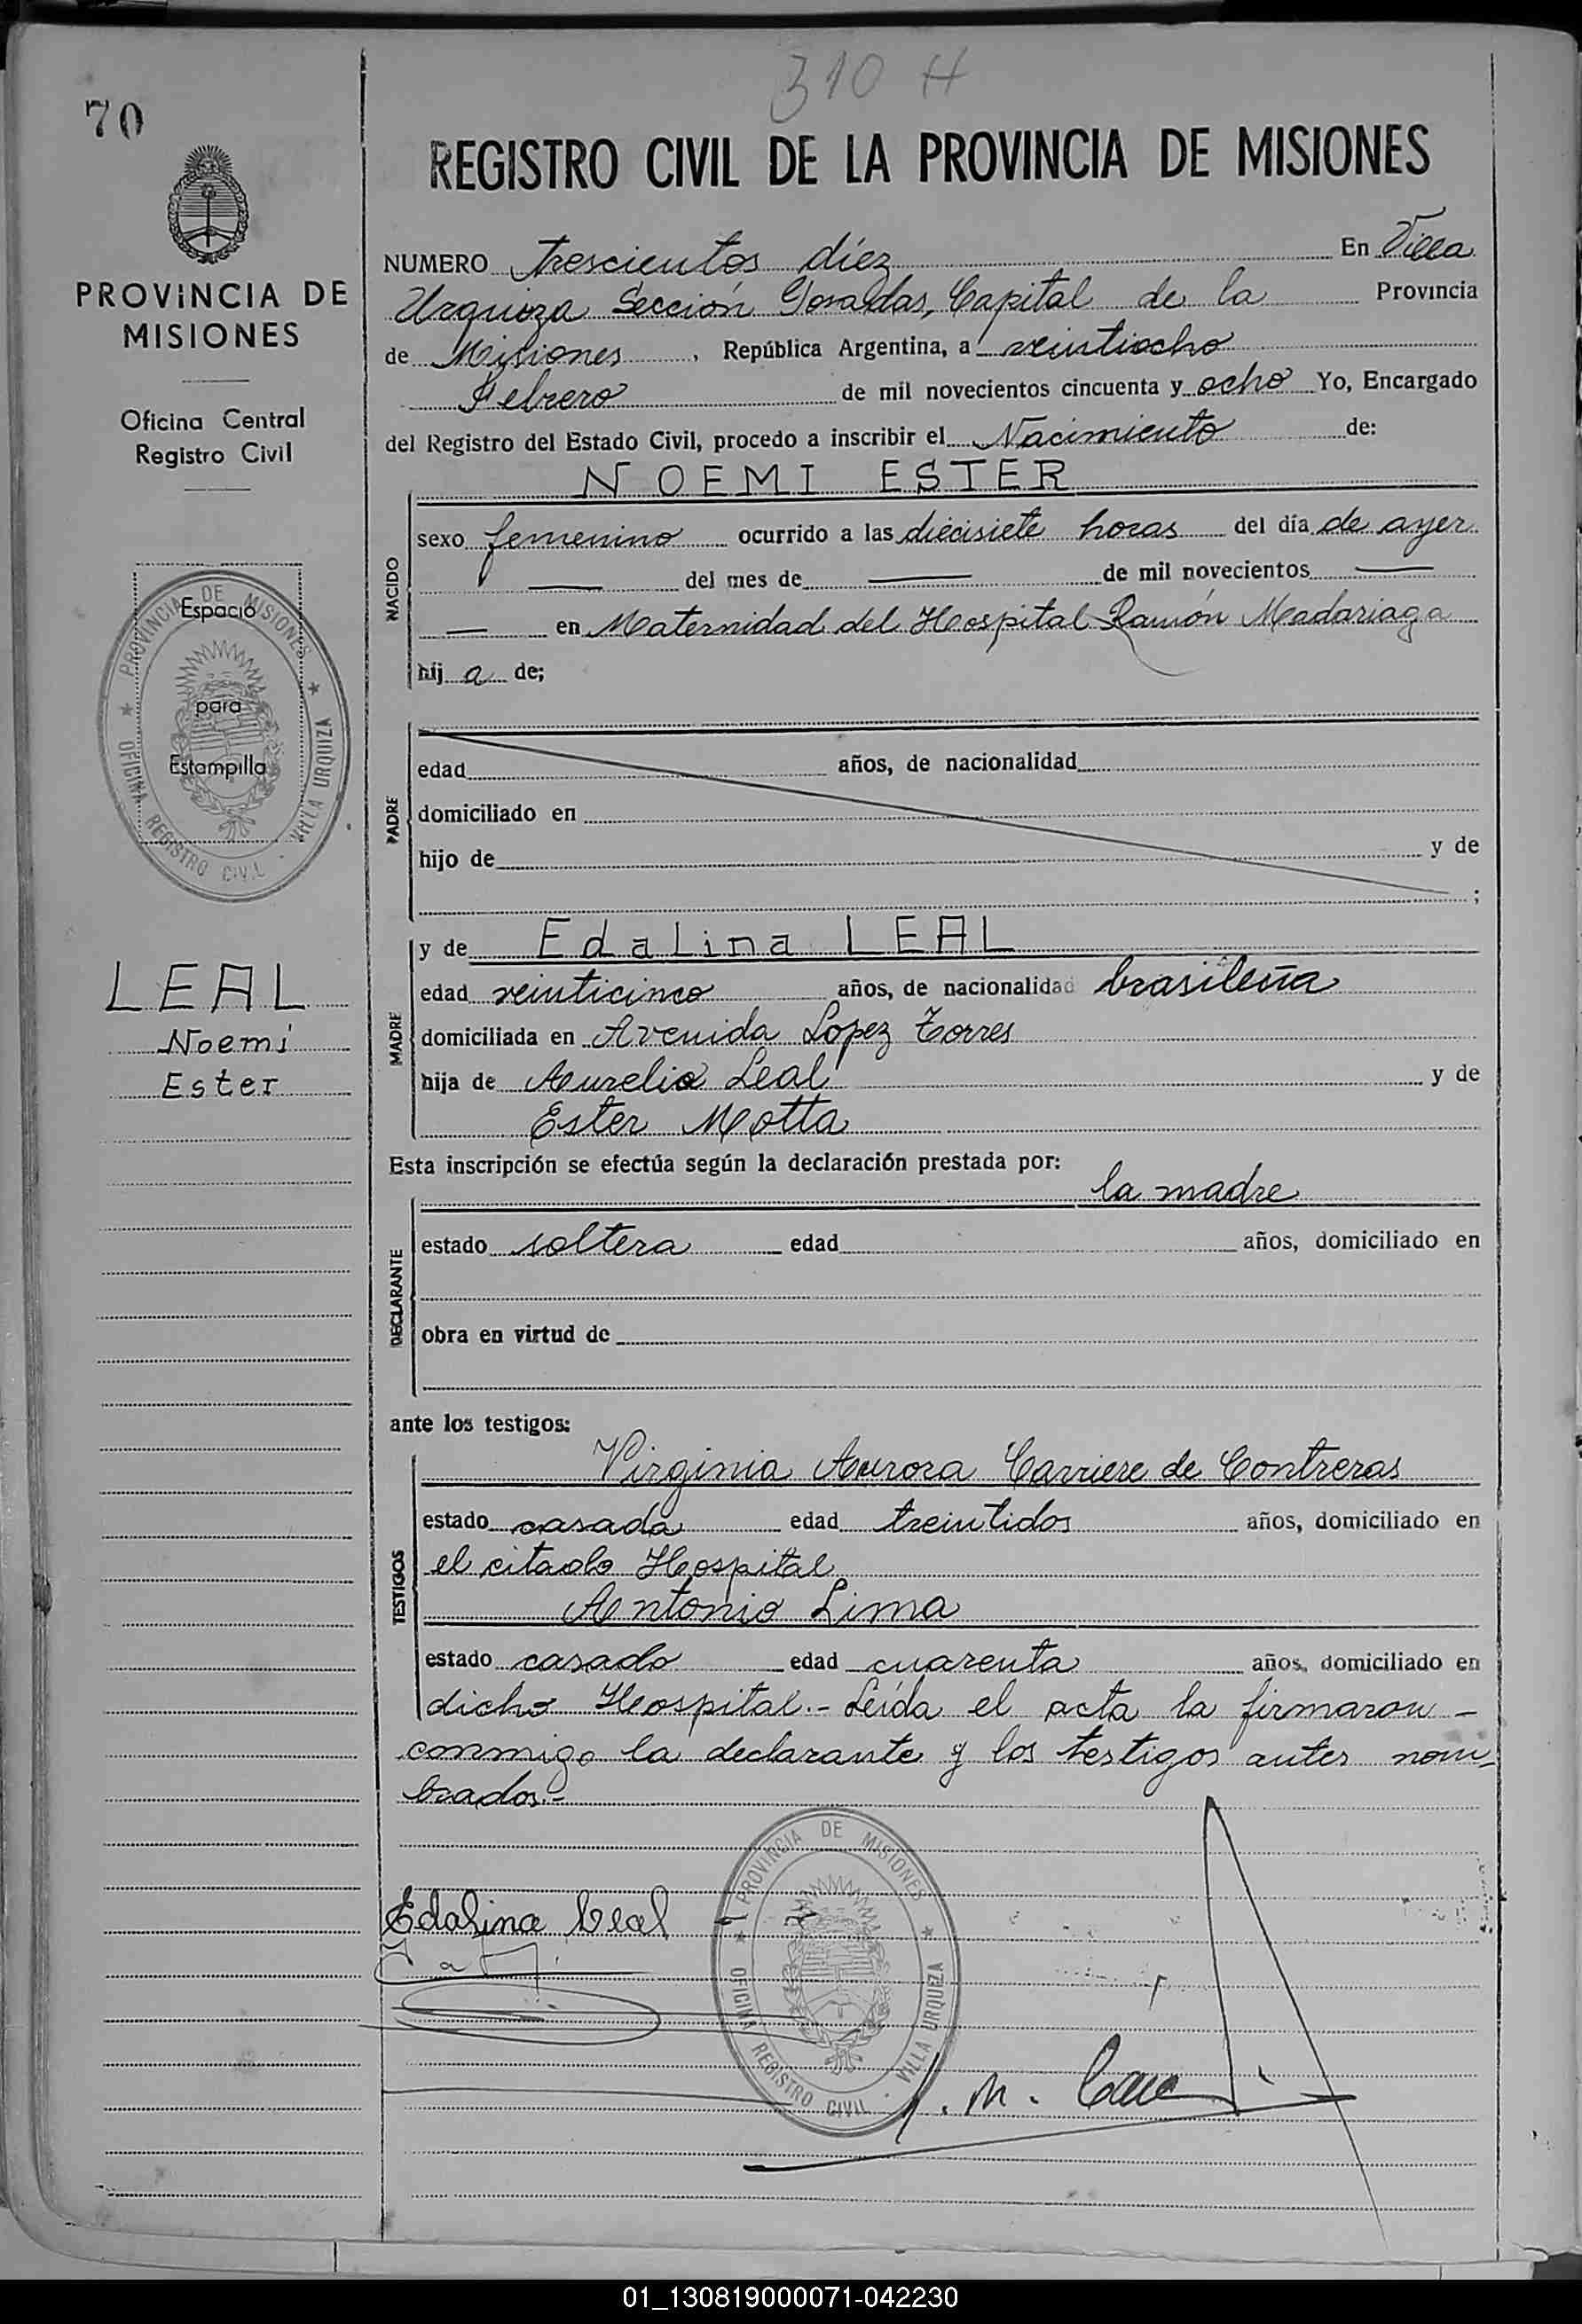 310 H
70
REGISTRO CIVIL DE LA PROVINCIA DE MISIONES
PROVINCIA DE
MISIONES
Oficina Central
Registro Civil
Espacio
para
Estampilla
PROVINCIA DE MISIONES
OFICINA REGISTRO CIVIL - VILLA URQUIZA
LEAL
Noemi
Ester
NUMERO trescientos díez En Villa
Urquiza Sección Posadas, Capital de la Provincia
de Misiones, República Argentina, a veintiocho
Febrero de mil novecientos cincuenta y ocho Yo, Encargado
del Registro del Estado Civil, procedo a inscribir el Nacimiento de:
NOEMI ESTER
NACIDO
sexo femenino ocurrido a las diecisiete horas del día de ayer
— del mes de — de mil novecientos —
— en Maternidad del Hospital Ramón Madariaga
hij a de;
PADRE
edad años, de nacionalidad
domiciliado en
hijo de y de
;
MADRE
y de Edalina LEAL
edad veinticinco años, de nacionalidad brasileña
domiciliada en Avenida Lopez Torres
hija de Aurelio Leal y de
Ester Motta
Esta inscripción se efectúa según la declaración prestada por:
la madre
DECLARANTE
estado soltera edad años, domiciliado en
obra en virtud de
ante los testigos:
TESTIGOS
Virginia Aurora Carriere de Contreras
estado casada edad treintidos años, domiciliado en
el citado Hospital
Antonio Lima
estado casado edad cuarenta años, domiciliado en
dicho Hospital.- Leída el acta la firmaron -
conmigo la declarante y los testigos antes nom-
brados.-
Edalina Leal
PROVINCIA DE MISIONES
OFICINA REGISTRO CIVIL - VILLA URQUIZA
01_130819000071-042230